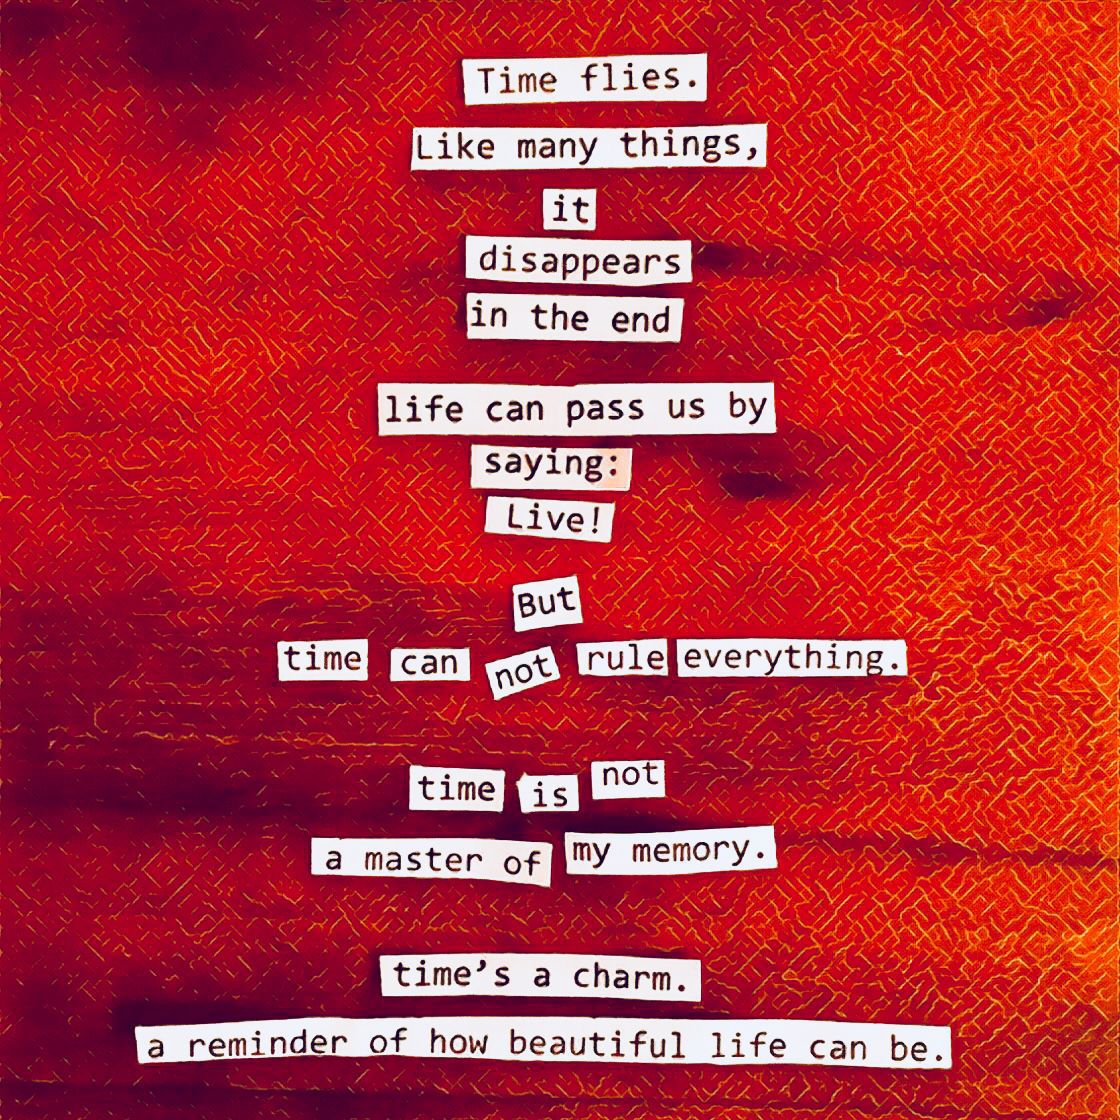 Time flies.
Like many things,
it
disappears
in the end
life can pass us by
saying:
Live!
But
time can not rule everything.
time is not
a master of my memory.
time's a charm.
a reminder of how beautiful life can be.